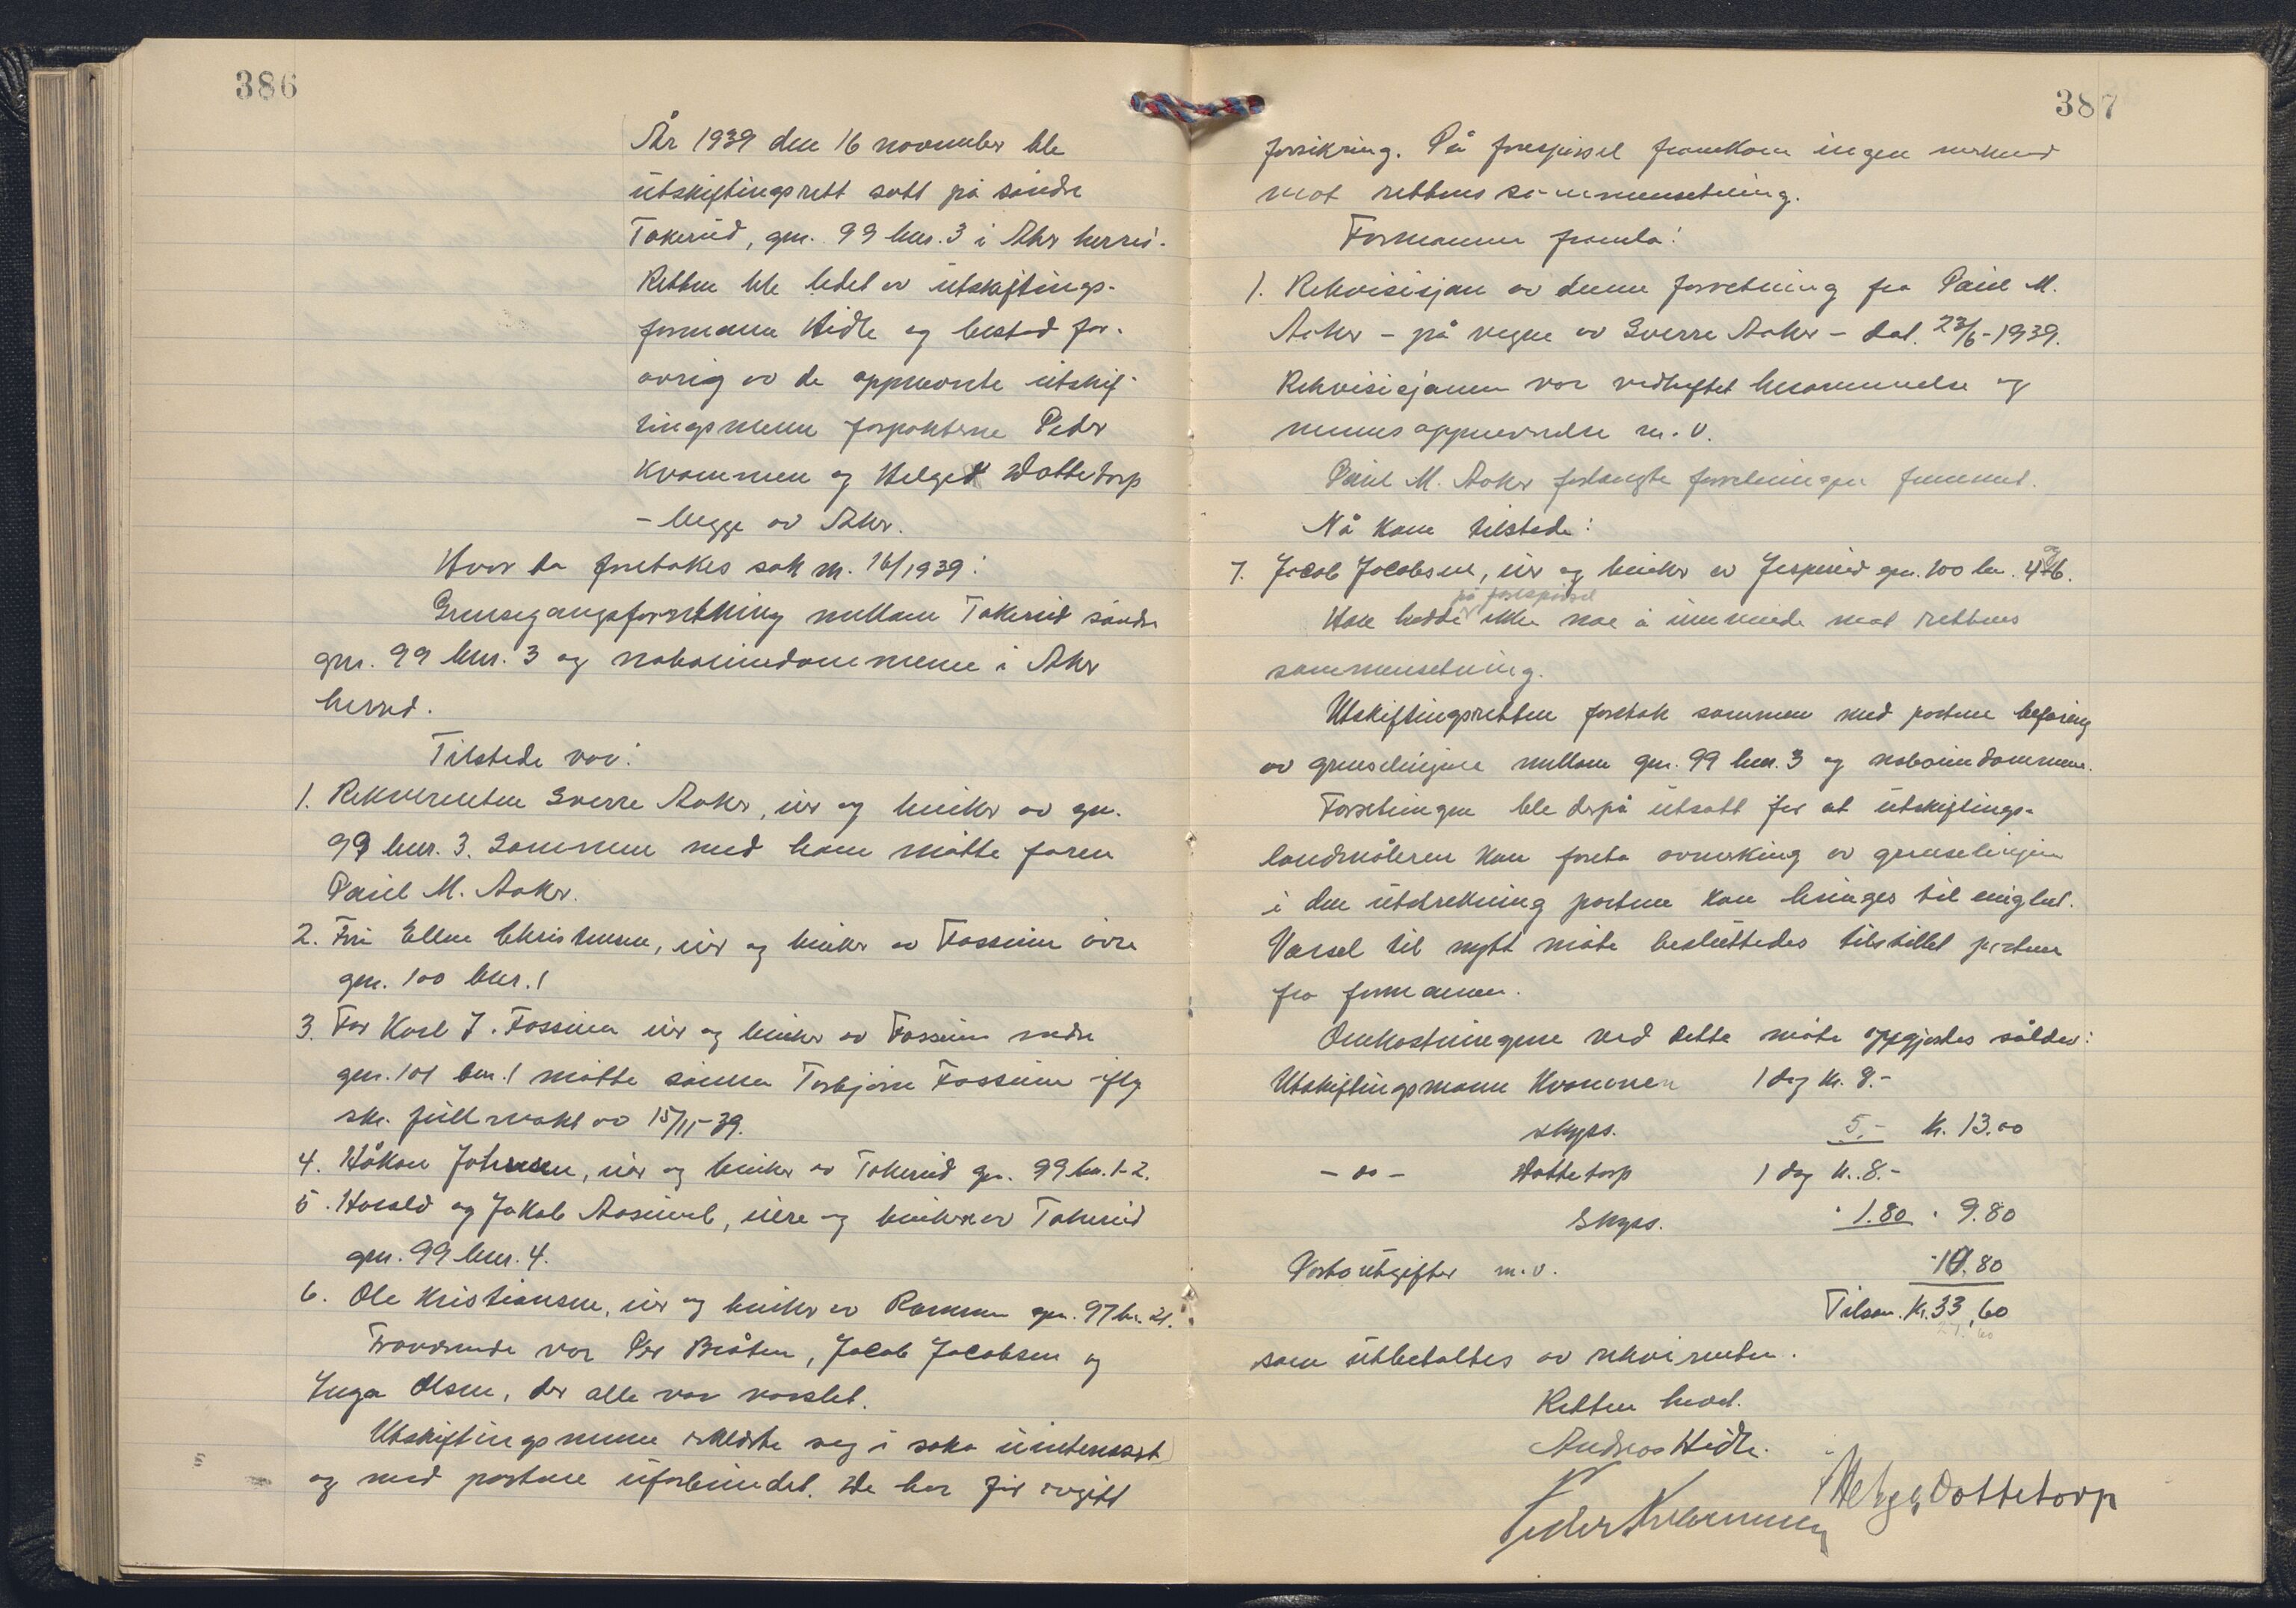 386
År 1939 den 16 november ble
utskiftingsrett satt på søndre
Tokerud, gnr. 99 bnr. 3 i Aker herred.
Retten ble ledet av utskiftings-
formann Hidle og bestod for-
øvrig av de oppnevnte utskif-
tingsmenn forpakterne Peder
Kvammen og Helge Dottetorp
- begge av Aker.
Hvor da foretokes sak nr. 16/1939:
Grensegangsforretning mellom Tokerud søndre
gnr. 99 bnr. 3 og naboeiendommene i Aker
herred.
Tilstede var:
1. Rekvirenten Sverre Aaker, eier og bruker av gnr.
99 bnr. 3. Sammen med ham møtte faren
Paul M. Aaker.
2. Fru Ellen Christensen, eier og bruker av Fossum øvre
gnr. 100 bnr. 1
3. For Karl J. Fossum eier og bruker av Fossum nedre
gnr. 101 bnr. 1 møtte sønnen Torbjørn Fossum iflg
skr. fullmakt av 15/11-39.
4. Håkon Johnsen, eier og bruker av Tokerud gnr. 99 bnr. 1-2.
5. Harald og Jakob Aasund, eiere og brukere av Tokerud
gnr. 99 bnr. 4.
6. Ole Kristiansen, eier og bruker av Rommen gnr. 97 bnr. 21.
Fraværende var Per Bråten, Jacob Jacobsen og
Inga Olsen, der alle var varslet.
Utskiftingsmenn erklærte seg i saka uinteressert
og med partene uforbundet. De har før avgitt
387
forsikring. På forespørsel framkom ingen merknad
mot rettens sammensetning.
Formannen framla:
1. Rekvisisjon av denne forretning fra Paul M.
Aaker - på vegne av Sverre Aaker - dat. 23/6-1939.
Rekvisisjonen var vedheftet berammelse og
mennsoppnevnelse m.v.
Paul M. Aaker forlangte forretningen fremmet.
Nå kom tilstede:
7. Jacob Jacobsen, eier og bruker av Jesperud gnr. 100 bnr. 4 og 6.
på forespørsel
Han hadde ikke noe å innvende mot rettens
sammensetning.
Utskiftingsretten foretok sammen med partene befaring
av grenselinjene mellom gnr. 99 bnr. 3 og naboeiendommene.
Forretningen ble derpå utsatt for at utskiftings-
landmåleren kan foreta avmerking av grenselinjen
i den utstrekning partene kan bringes til enighet.
Varsel til nytt møte besluttedes tilstillet partene
fra formannen.
Omkostningene ved dette møte oppgjordes således:
Utskiftingsmann Kvammen 1 dag kr. 8.-
skyss. 5.- kr. 13.00
- do - Dottetorp 1 dag kr. 8.-
Skyss. " 1.80 " 9.80
Portoutgifter m.v. " 10.80
Tilsam. kr. 33,60
som utbetaltes av rekvirenten.
Retten hevet.
Andreas Hidle.
Peder Kvammen Helge Dottetorp